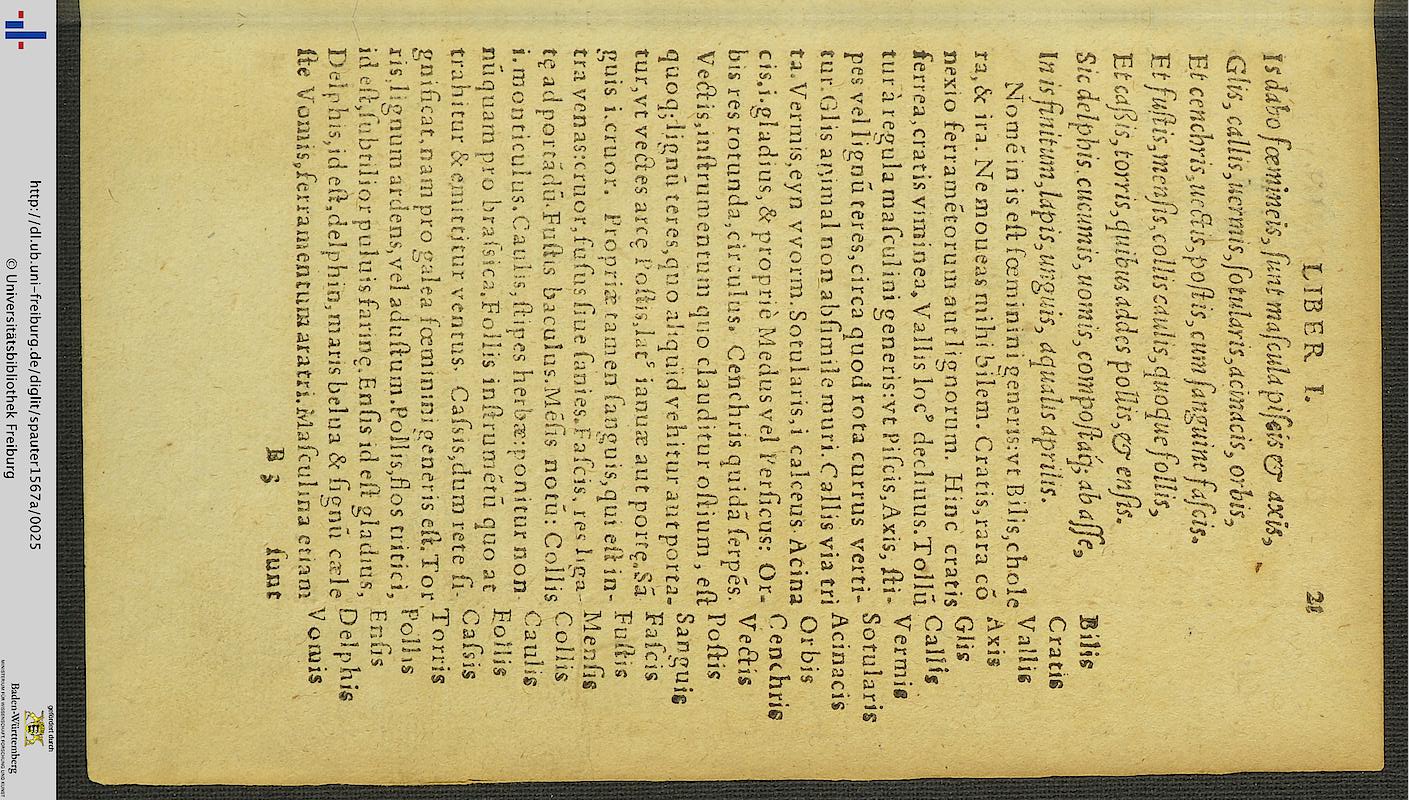 LIBER I. 21
Is dabo fœmineis, sunt mascula piscis & axis,
Glis, callis, uermis, sotularis, acinacis, orbis,
Et cenchris, uectis, postis, cum sanguine fascis.
Et fustis, mensis, collis caulis, quoque follis,
Et caßis, torris, quibus addes pollis, & ensis.
Sic delphis. cucumis, uomis, compostaq́; ab asse,
In is finitum, lapis, unguis, aqualis aprilis.
Nomē in is est fœminini generis: vt Bilis, chole
ra, & ira. Ne moueas mihi bilem. Cratis, rara cō
nexio ferramētorum aut lignorum. Hinc cratis
ferrea, cratis viminea, Vallis locꝰ decliuus. Tollū
tur à regula masculini generis: vt Piscis, Axis, sti-
pes vel lignū teres, circa quod rota currus verti-
tur. Glis animal non absimile muri. Callis via tri
ta. Vermis, eyn vvorm. Sotularis, i calceus. Acina
cis, i. gladius, & propriè Medus vel Persicus: Or-
bis res rotunda, circulus. Cenchris quidā serpēs.
Vectis, instrumentum quo clauditur ostium, est
quoq; lignū teres, quo aliquid vehitur aut porta-
tur, vt vectes arcę Postis, latꝰ ianuæ aut portę. Sā
guis i. cruor. Propriæ tamen sanguis, qui est in-
tra venas: cruor, fusus siue sanies. Fascis, res liga-
tę ad portādū. Fustis baculus. Mēsis notū: Collis
i. monticulus. Caulis, stipes herbæ: ponitur non
nūquam pro brassica. Follis instrumētū quo at
trahitur & emittitur ventus. Cassis, dum rete si-
gnificat, nam pro galea fœminini generis est. Tor
ris, lignum ardens, vel adustum. Pollis, flos tritici,
id est, subtilior puluis farinę. Ensis id est gladius,
Delphis, id est, delphin, maris belua & signū cæle
ste Vomis, ferramentum aratri. Masculina etiam
B 3 sunt
Bilis
Cratis
Vallis
Axis
Glis
Callis
Vermis
Sotularis
Acinacis
Orbis
Cenchris
Vectis
Postis
Sanguis
Fascis
Fustis
Mensis
Collis
Caulis
Follis
Cassis
Torris
Pollis
Ensis
Delphis
Vomis
http://dl.ub.uni-freiburg.de/diglit/spauter1567a/0025
© Universitätsbibliothek Freiburg
gefördert durch
Baden-Württemberg
MINISTERIUM FÜR WISSENSCHAFT, FORSCHUNG UND KUNST